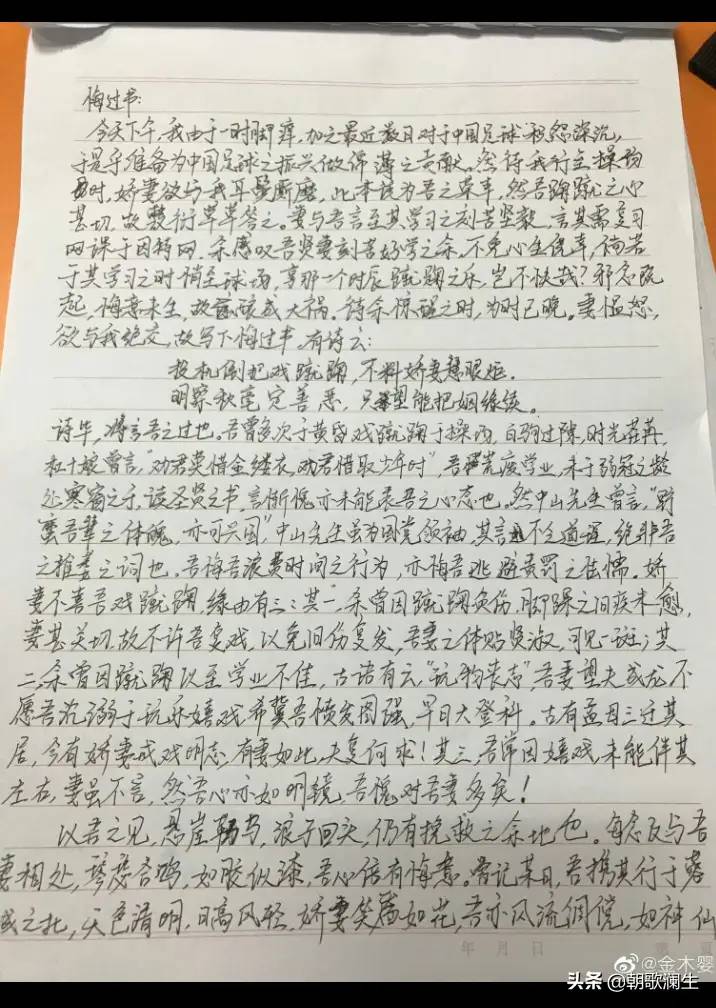 悔过书:
今天下午,我由于一时脚痒,加之最近数日对于中国足球积怨深沉,
于是乎准备为中国足球之振兴做绵薄之贡献。然待我行至操场
时,娇妻欲与我耳鬓厮磨,此本该为吾之荣幸,然吾蹴鞠之心
甚切,故敷衍草草答之。妻与吾言至其学习之刻苦坚毅,言其需复习
网课于因特网,余感叹吾贤妻刻苦好学之余,不免心生侥幸,倘若
于其学习之时悄至球场,享那一个时辰蹴鞠之乐,岂不快哉?邪念既
起,悔意未生,故酿成大祸。待余惊醒之时,为时已晚。妻愠怒,
欲与我绝交,故写下悔过书,有诗云:
投机倒把戏蹴鞠,不料娇妻慧眼炬.
明察秋毫定善恶,只望能把姻缘续。
诗毕,将言吾之过也。吾曾多次于黄昏戏蹴鞠于操场,白驹过隙,时光荏苒,
杜十娘曾言,"劝君莫惜金缕衣,劝君惜取少年时",吾荒废学业,未于弱冠之龄
处寒窗之下,读圣贤之书,言惭愧亦未能表吾之心态也。然中山先生曾言,"野
蛮吾辈之体魄,亦可兴国"中山先生虽为国党领袖,其言不乏道理,绝非吾
之推委之词也。吾悔吾浪费时间之行为,亦悔吾逃避责罚之怯懦。娇
妻不喜吾戏蹴鞠,缘由有三:其一,余曾因蹴鞠负伤,脚踝之旧疾未愈,
妻甚关切,故不许吾复戏,以免旧伤复发,吾妻之体贴贤淑,可见一斑;其
二,余曾因蹴鞠以至学业不佳,古语有云"玩物丧志",吾妻望夫成龙,不
愿吾沉溺于玩乐嬉戏,希冀吾愤发图强,早日大登科。古有孟母三迁其
居,今有娇妻戒戏明志,有妻如此,夫复何求!其三,吾常因嬉戏,未能伴其
左右,妻虽不言,然吾心亦如明镜,吾愧对吾妻多矣!
以吾之见,悬崖勒马,浪子回头,仍有挽救之余地也。每念及与吾
妻相处,琴瑟合鸣,如胶似漆,吾心倍有悔意。尝记某日,吾携其行于
城之北,天色清明,日高风轻,娇妻笑靥如花,吾亦风流倜傥,如神仙
年 月 日
@金木婴
头条 @朝歌澜生